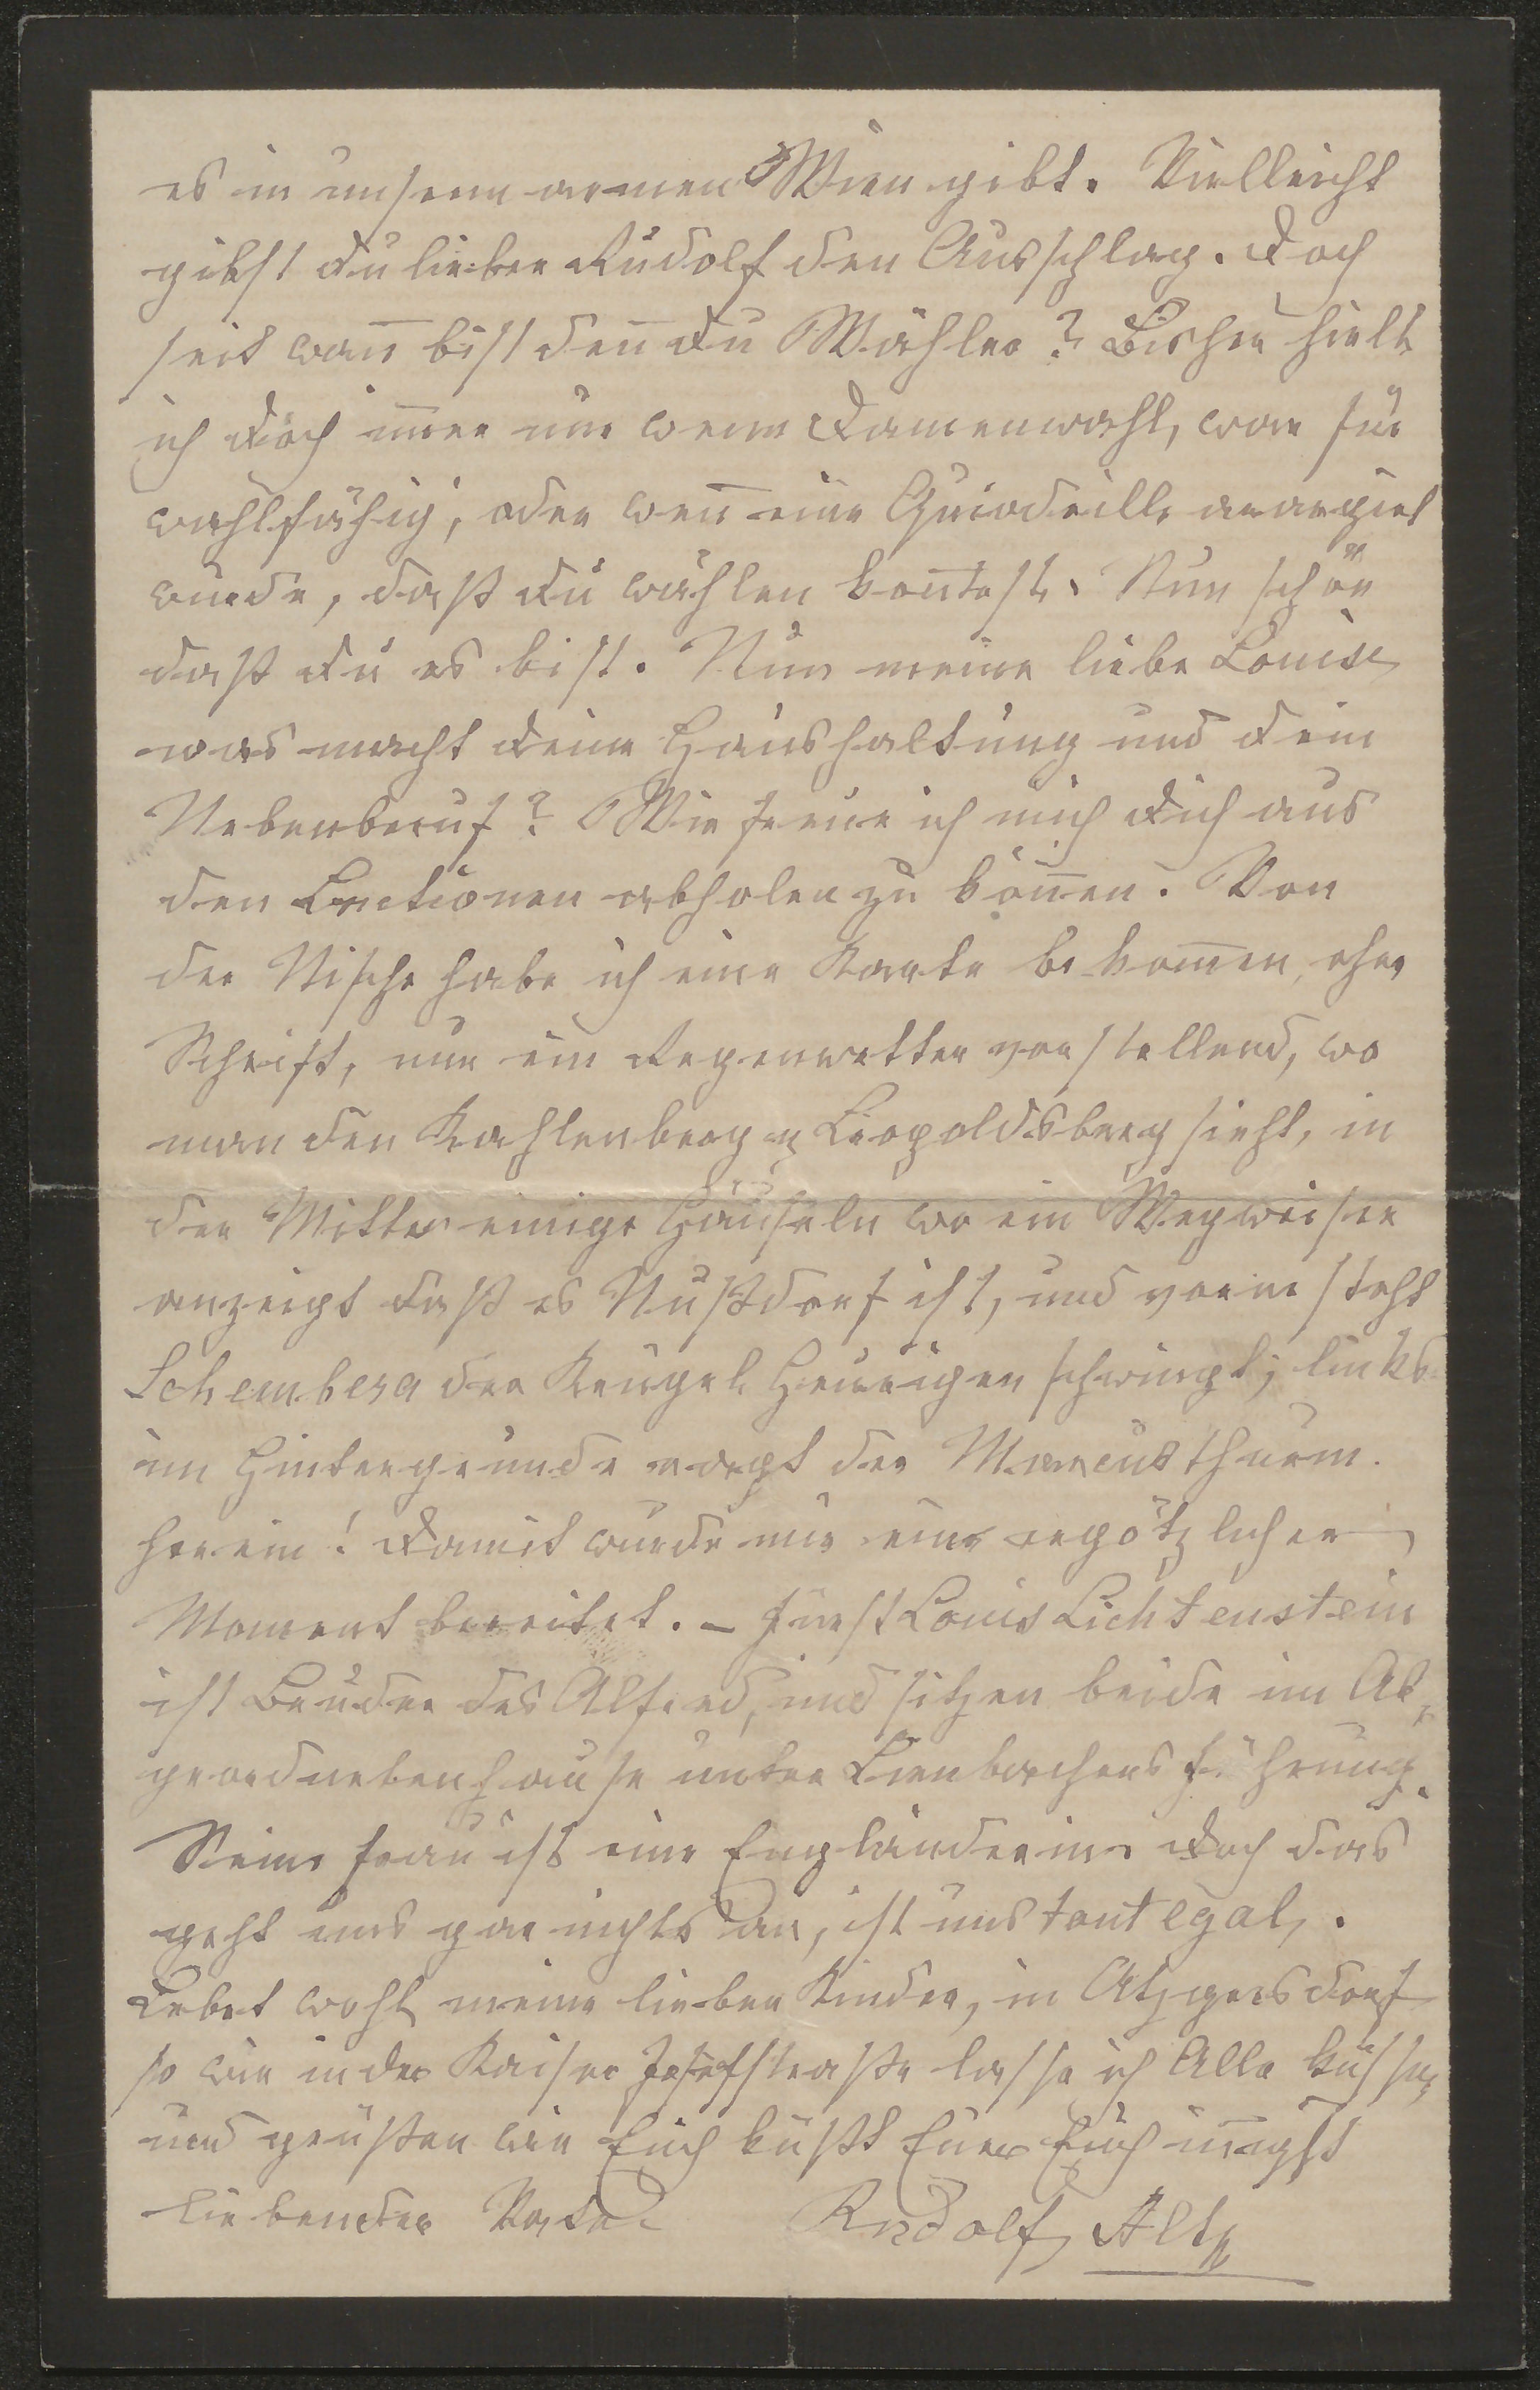 es in unserm armen Wien gibt. Vielleicht
gibst Du lieber Rudolf den Ausschlag. Doch
seit wan̄ bist den̄ Du Wähler? Bisher hielt
ich Dich im̄er nur wenn Damenwahl, war für
wahlfähig, oder wen̄ eine Quadrille arangirt
wurde, daß Du wählen kon̄test. Nun schön
daß Du es bist. Nun meine liebe Louise
was macht Deine Haushaltung und Dein
Nebenberuf? Wie freue ich mich Dich aus
den Lectionen abholen zu kön̄en. Von
der Nische habe ich eine Karte bekom̄en, ohne
Schrift, nur ein Regenwetter vorstellend, wo
man den Kahlenberg u Leopoldsberg sieht, in
der Mitte einige Häuseln wo ein Wegweiser
anzeigt daß es Nußdorf ist, und vorne steht
Schembera der Krügel Heurigen schwingt; links
im Hintergrunde ragt der Marcusthurm
herein! Damit wurde mir ein ergötzlicher
Moment bereitet. – Fürst Louis Lichtenstein
ist Bruder des Alfred, und sitzen beide im Ab„
geordnetenhause unter Lienbachers Führung.
Seine Frau ist eine Engländerin. Doch das
geht uns gar nichts an, ist uns tout egal.
Lebet wohl meine lieben Kinder, in Atzgersdorf
so wie in der Kaiser Josefstraße lasse ich Alle küssen
und grüßen wie Euch küßt Euer Euch in̄igst
liebender Vater Rudolf Alt